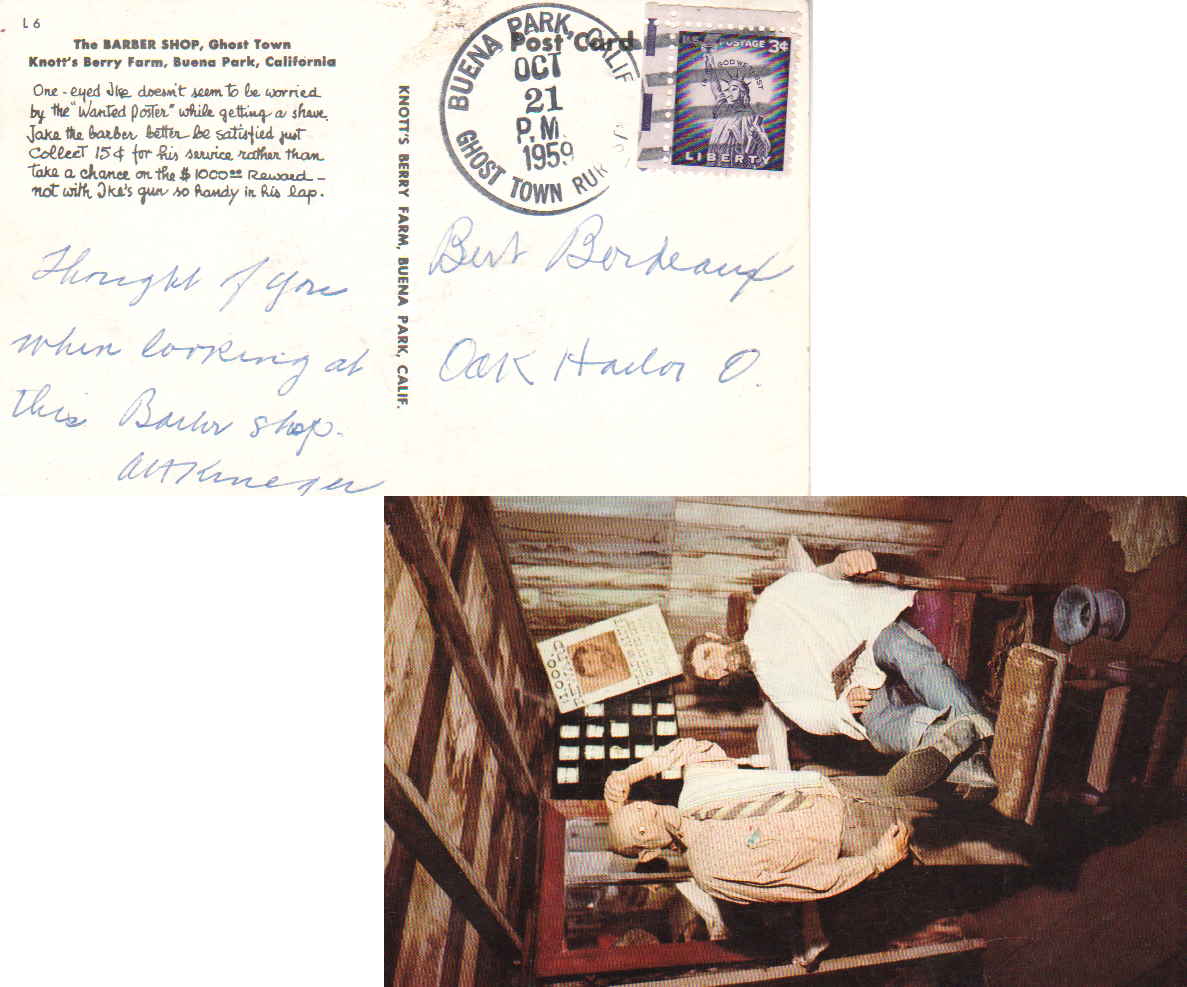 L6
The BARBER SHOP, Ghost Town
Knott's Berry Farm, Buena Park, California
One-eyed Ike doesn't seem to be worried
by the "Wanted Poster" while getting a shave.
Jake the barber better be satisfied just
collect 15¢ for his service rather than
take a chance on the $1000.00 Reward —
not with Ike's gun so handy in his lap.
Thought of you
when looking at
this Barber shop.
Krueger
KNOTT'S BERRY FARM, BUENA PARK, CALIF.
Post Card
BUENA PARK, CALIF
OCT
21
P.M.
1959
GHOST TOWN
U.S. POSTAGE 3¢
IN GOD WE TRUST
LIBERTY
Bert Bordeaux
Oak Harbor O.
$1000.00
REWARD